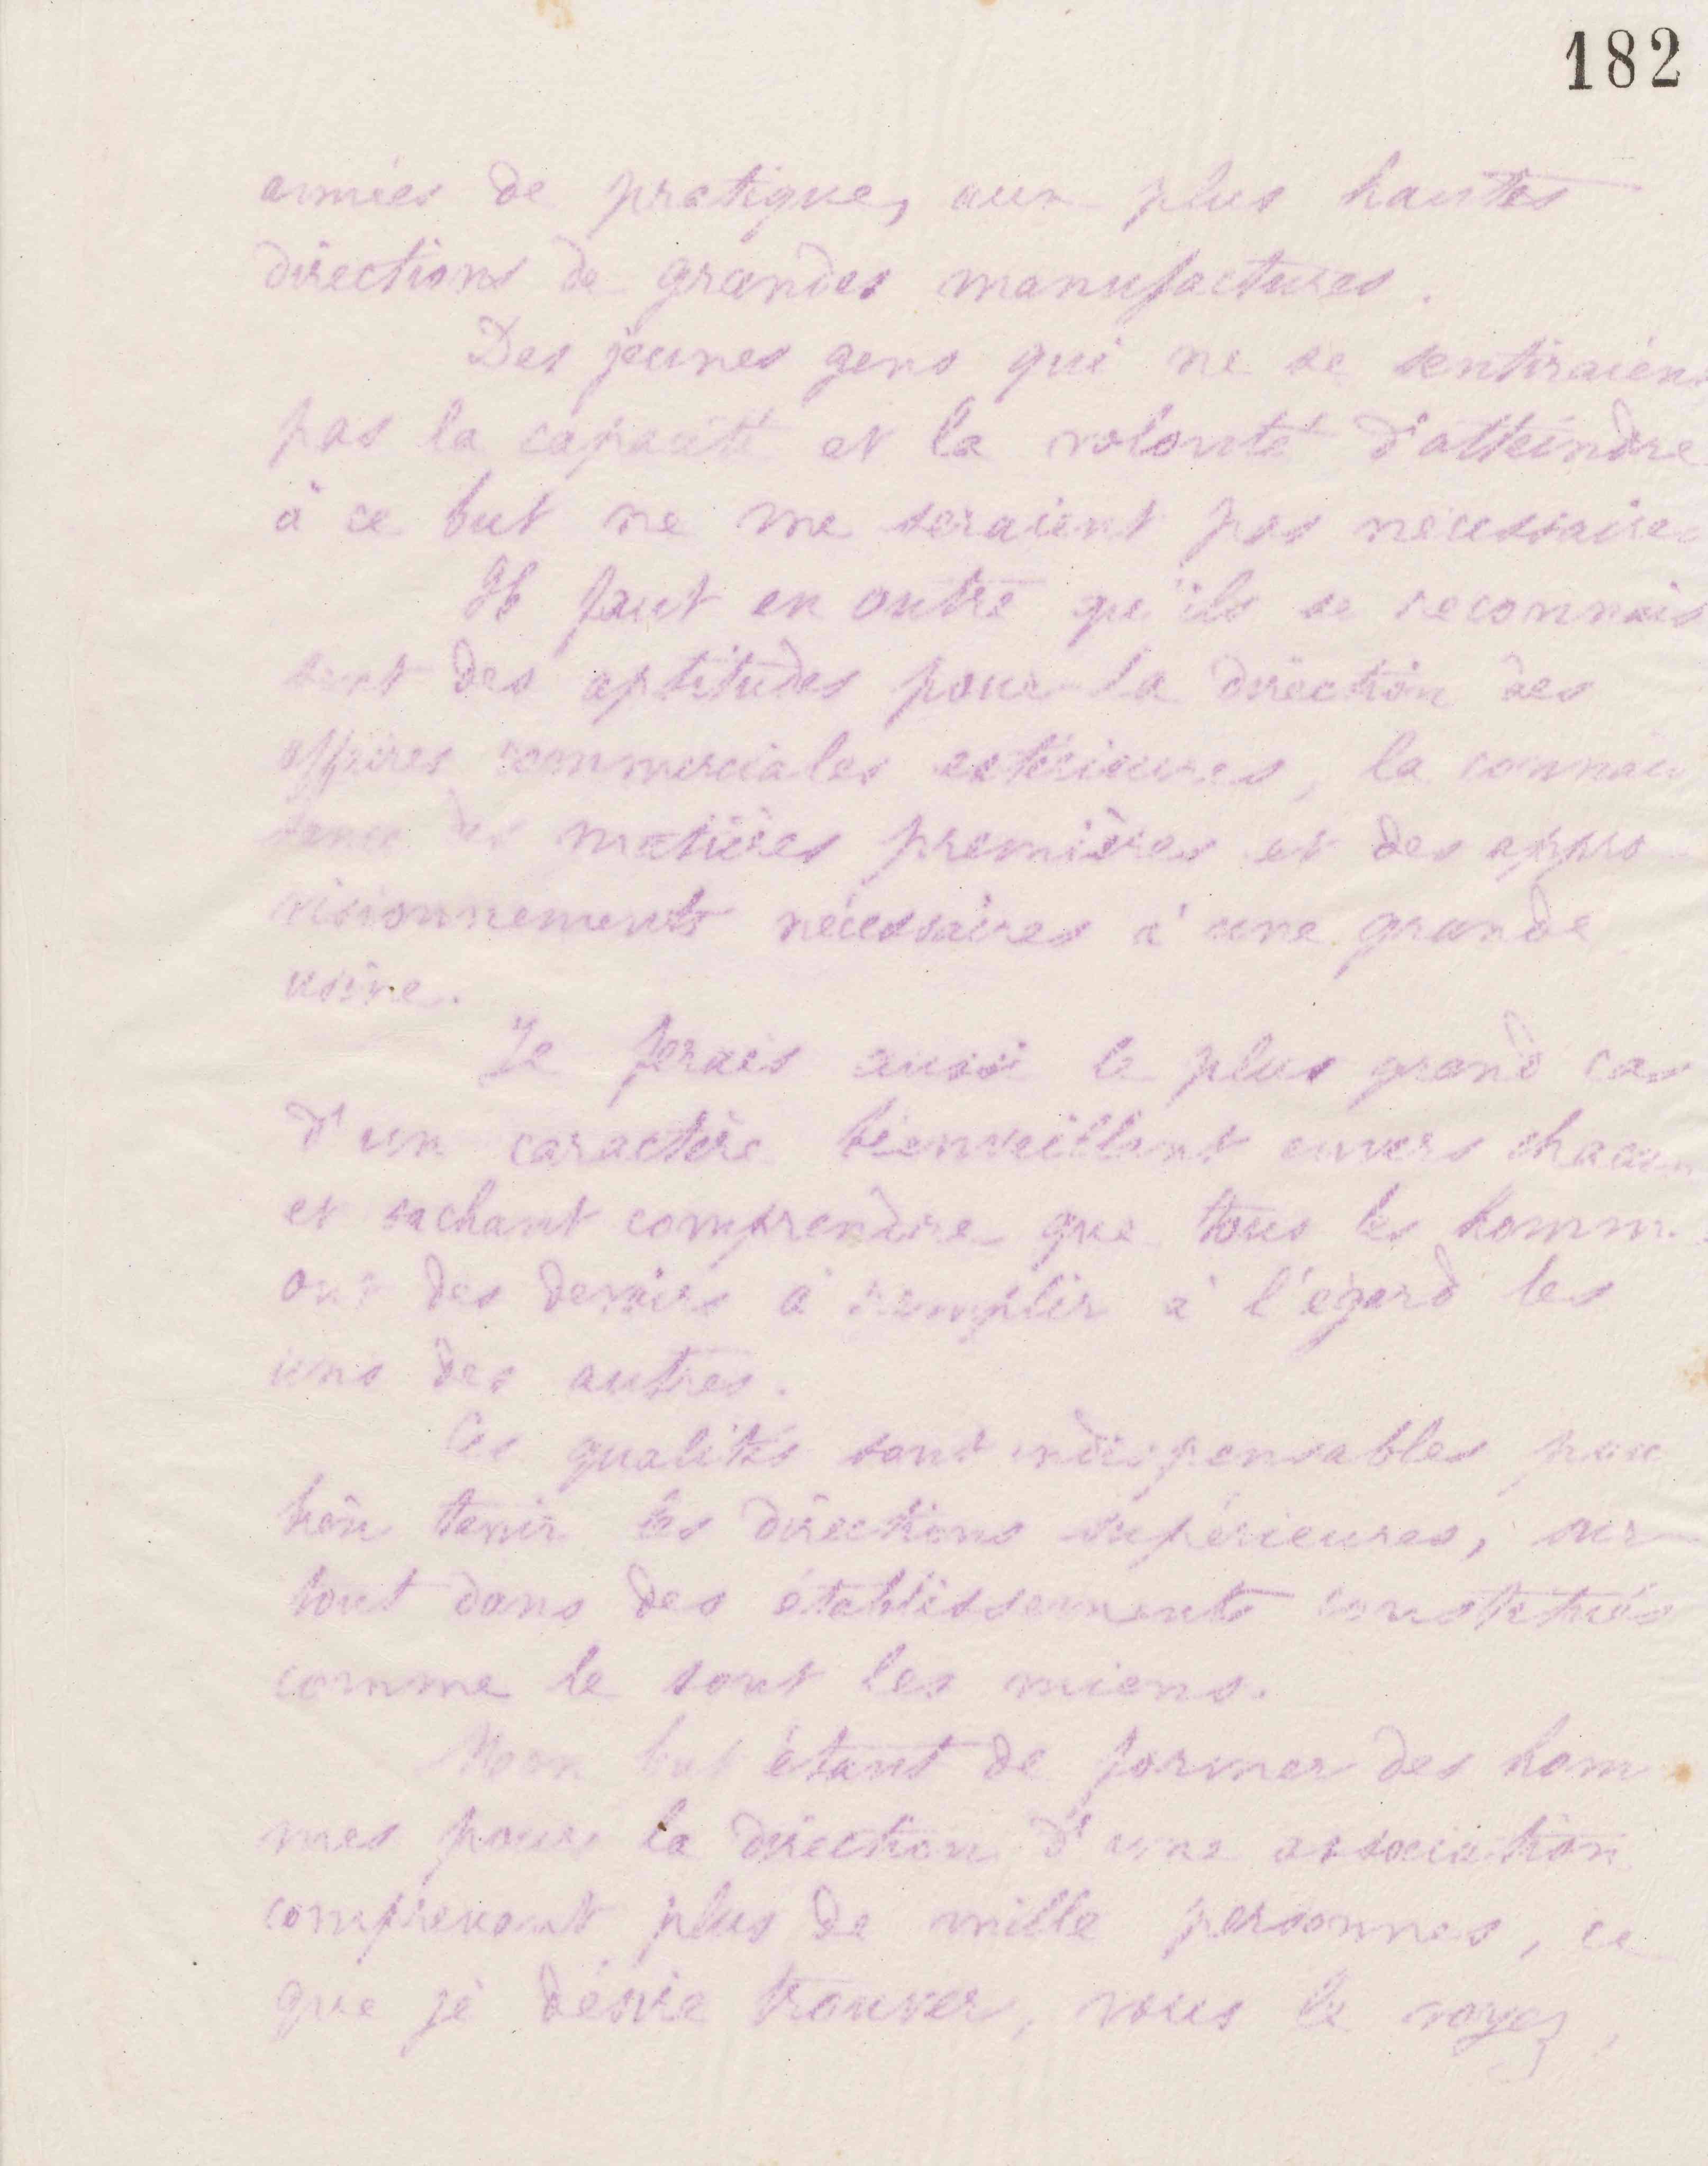 182
années de pratique, aux plus hautes
directions de grandes manufactures.
Des jeunes gens qui ne se sentiraient
pas la capacité et la volonté d'atteindre
à ce but ne me seraient pas nécessaires
Il faut en outre qu'ils se reconnais
sent des aptitudes pour la direction des
affaires commerciales extérieures, la connais
sance des matières premières et des appro
visionnements nécessaires à une grande
usine.
Je ferais aussi le plus grand cas
d'un caractère bienveillant envers chacun
et sachant comprendre que tous les homm
ont des devoirs à remplir à l'égard les
uns des autres.
Ces qualités sont indispensables pour
bien tenir les directions supérieures, sur
tout dans des établissements constitués
comme le sont les miens.
Mon but étant de former des hom
mes pour la direction d'une association
comprenant plus de mille personnes, ce
que je désire trouver, vous le voyez,